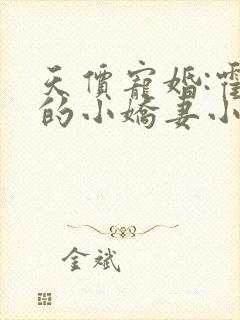 天價寵婚:霍
的小嬌妻小
金斌